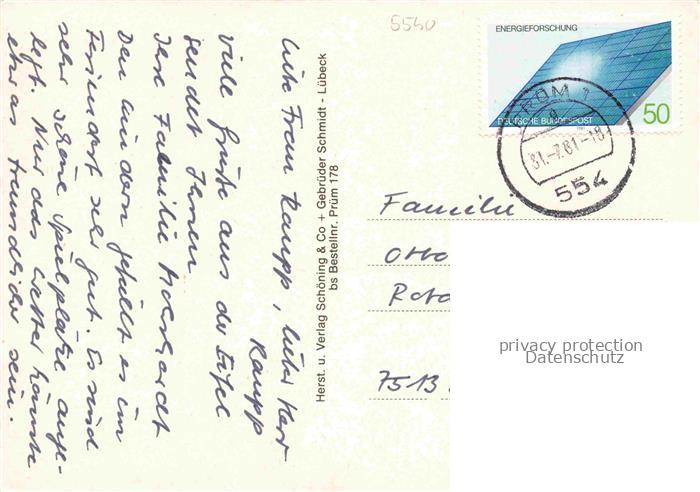 5540
ENERGIEFORSCHUNG
DEUTSCHE BUNDESPOST
50
PRÜM 1
31.-7.81.-18
554
Liebe Frau Raupp, lieber Herr
Raupp
Viele Grüße aus der Eifel
sendet Ihnen
Ihre Familie
Den Kindern gefällt es im
Feriendorf sehr gut. Es sind
sehr schöne Spielplätze ange-
legt. Nur das Wetter könnte
etwas freundlicher sein.
Herst. u. Verlag Schöning & Co + Gebrüder Schmidt - Lübeck
bs Bestellnr. Prüm 178
Familie
Otto
7513
privacy protection
Datenschutz